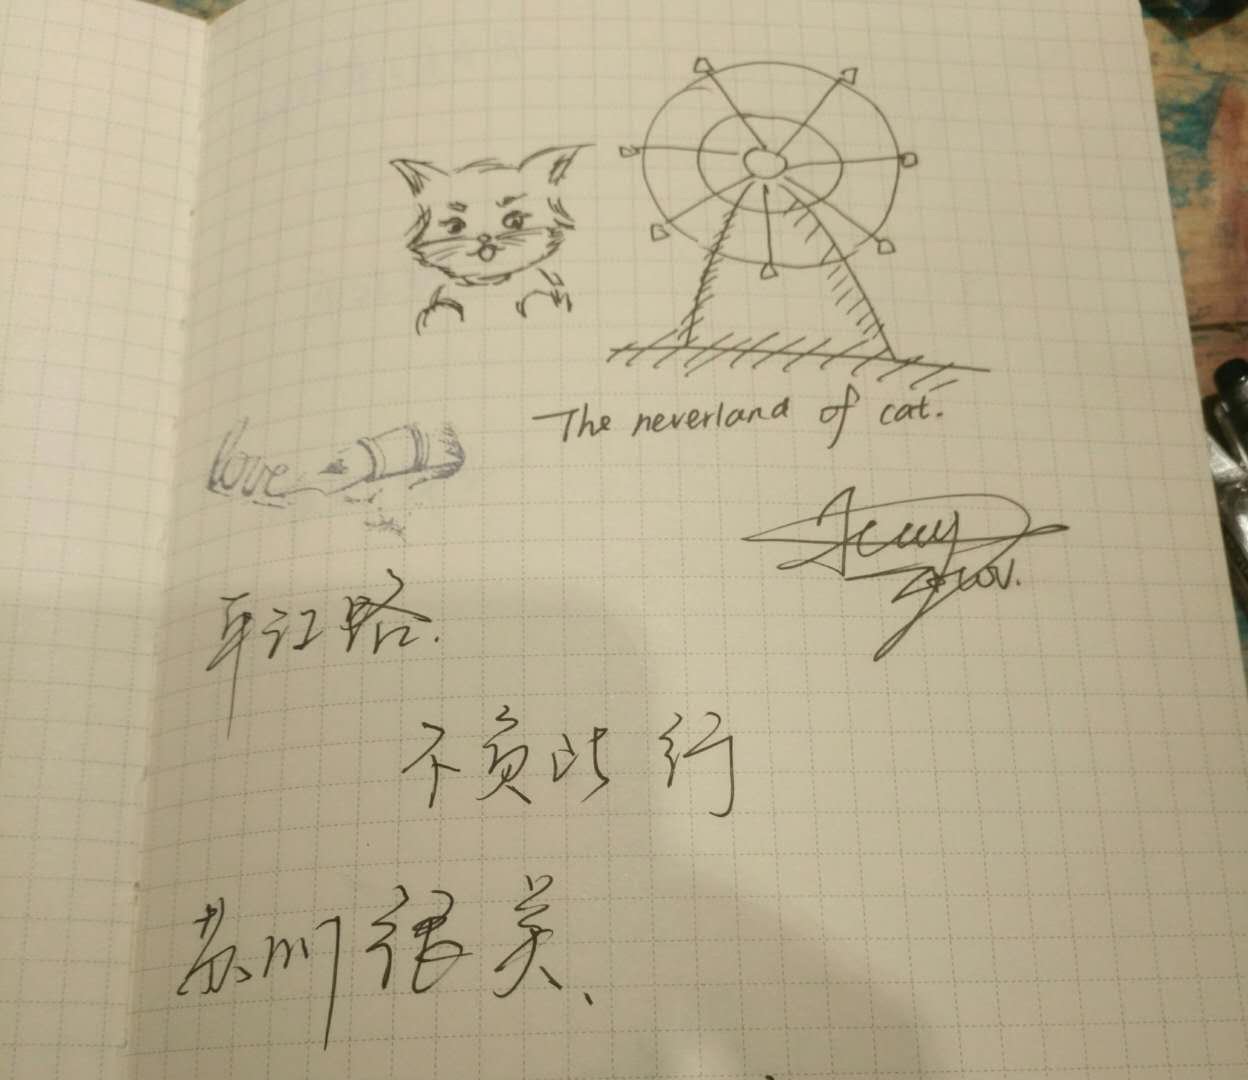 The neverland of cat.
love
平江路.
不负此行
苏州很美、